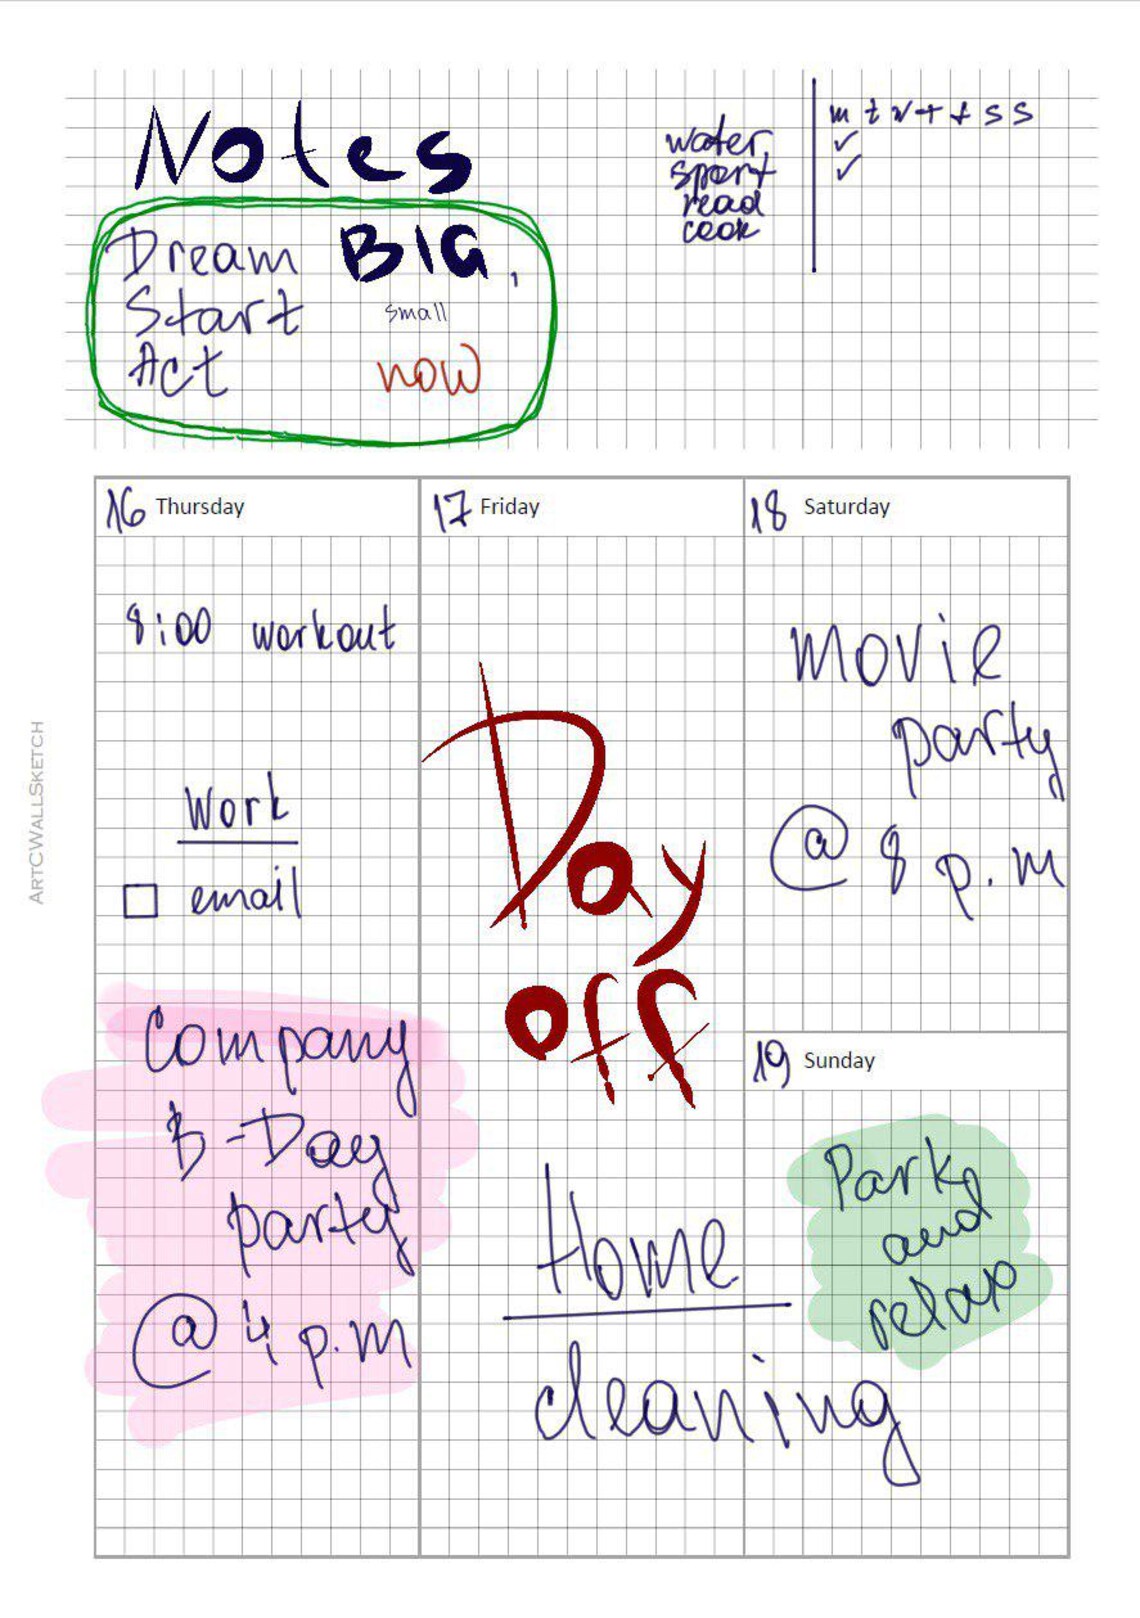 Notes
Dream BIG,
Start small
Act now
m t w t f s s
water ✓
sport ✓
read
cook
16 Thursday
8:00 workout
work
☐ email
Company
B-Day
party
@ 4 p.m
17 Friday
Day
off
Home
cleaning
18 Saturday
movie
party
@ 8 p.m
19 Sunday
Park
and
relax
ArtCWallSketch